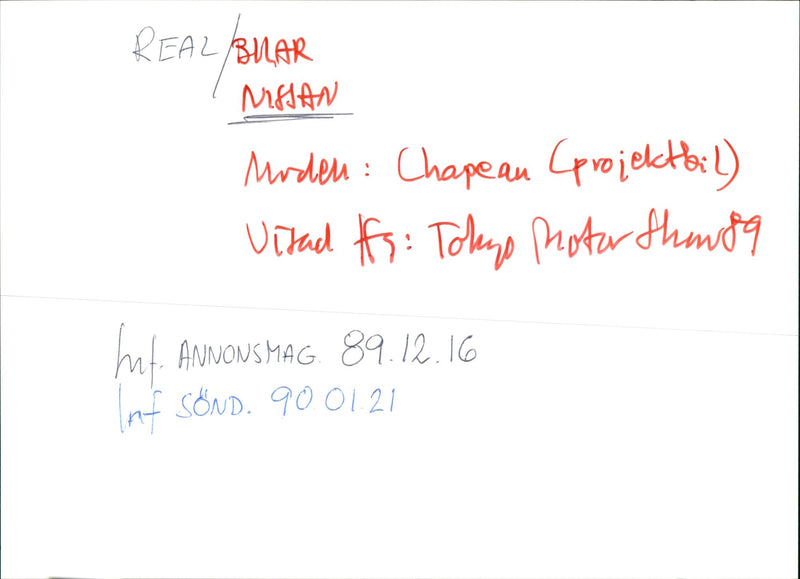 REAL/BILAR
NISSAN
Modell: Chapeau (projektbil)
Visad ffg: Tokyo Motor Show 89
Inf. ANNONSMAG. 89.12.16
Inf SÖND. 90.01.21